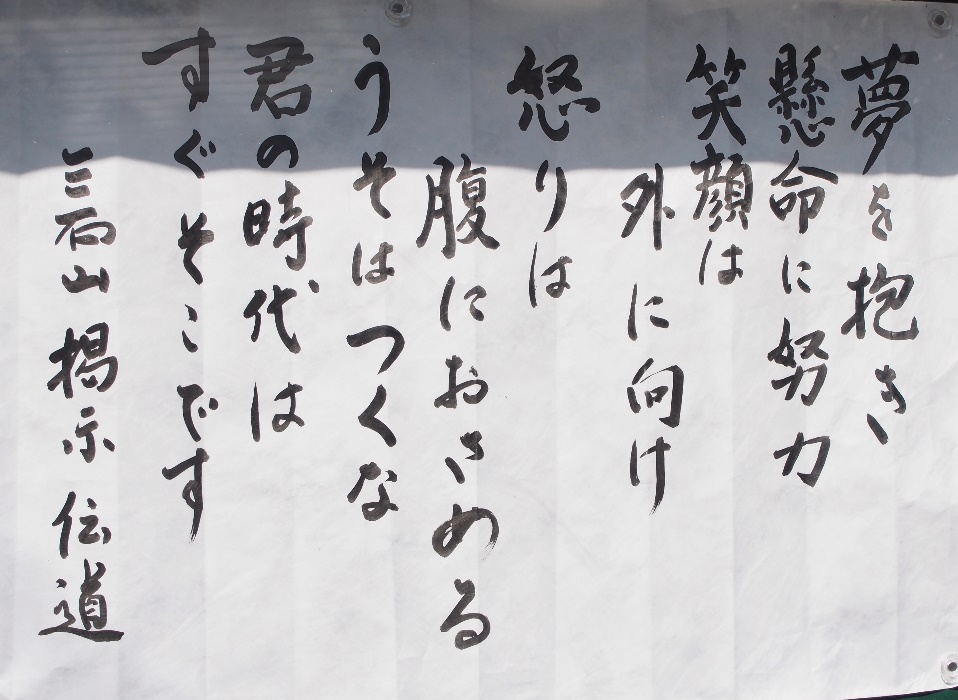 夢を抱き
懸命に努力
笑顔は
外に向け
怒りは
腹におさめる
うそはつくな
君の時代は
すぐそこです
三石山掲示伝道